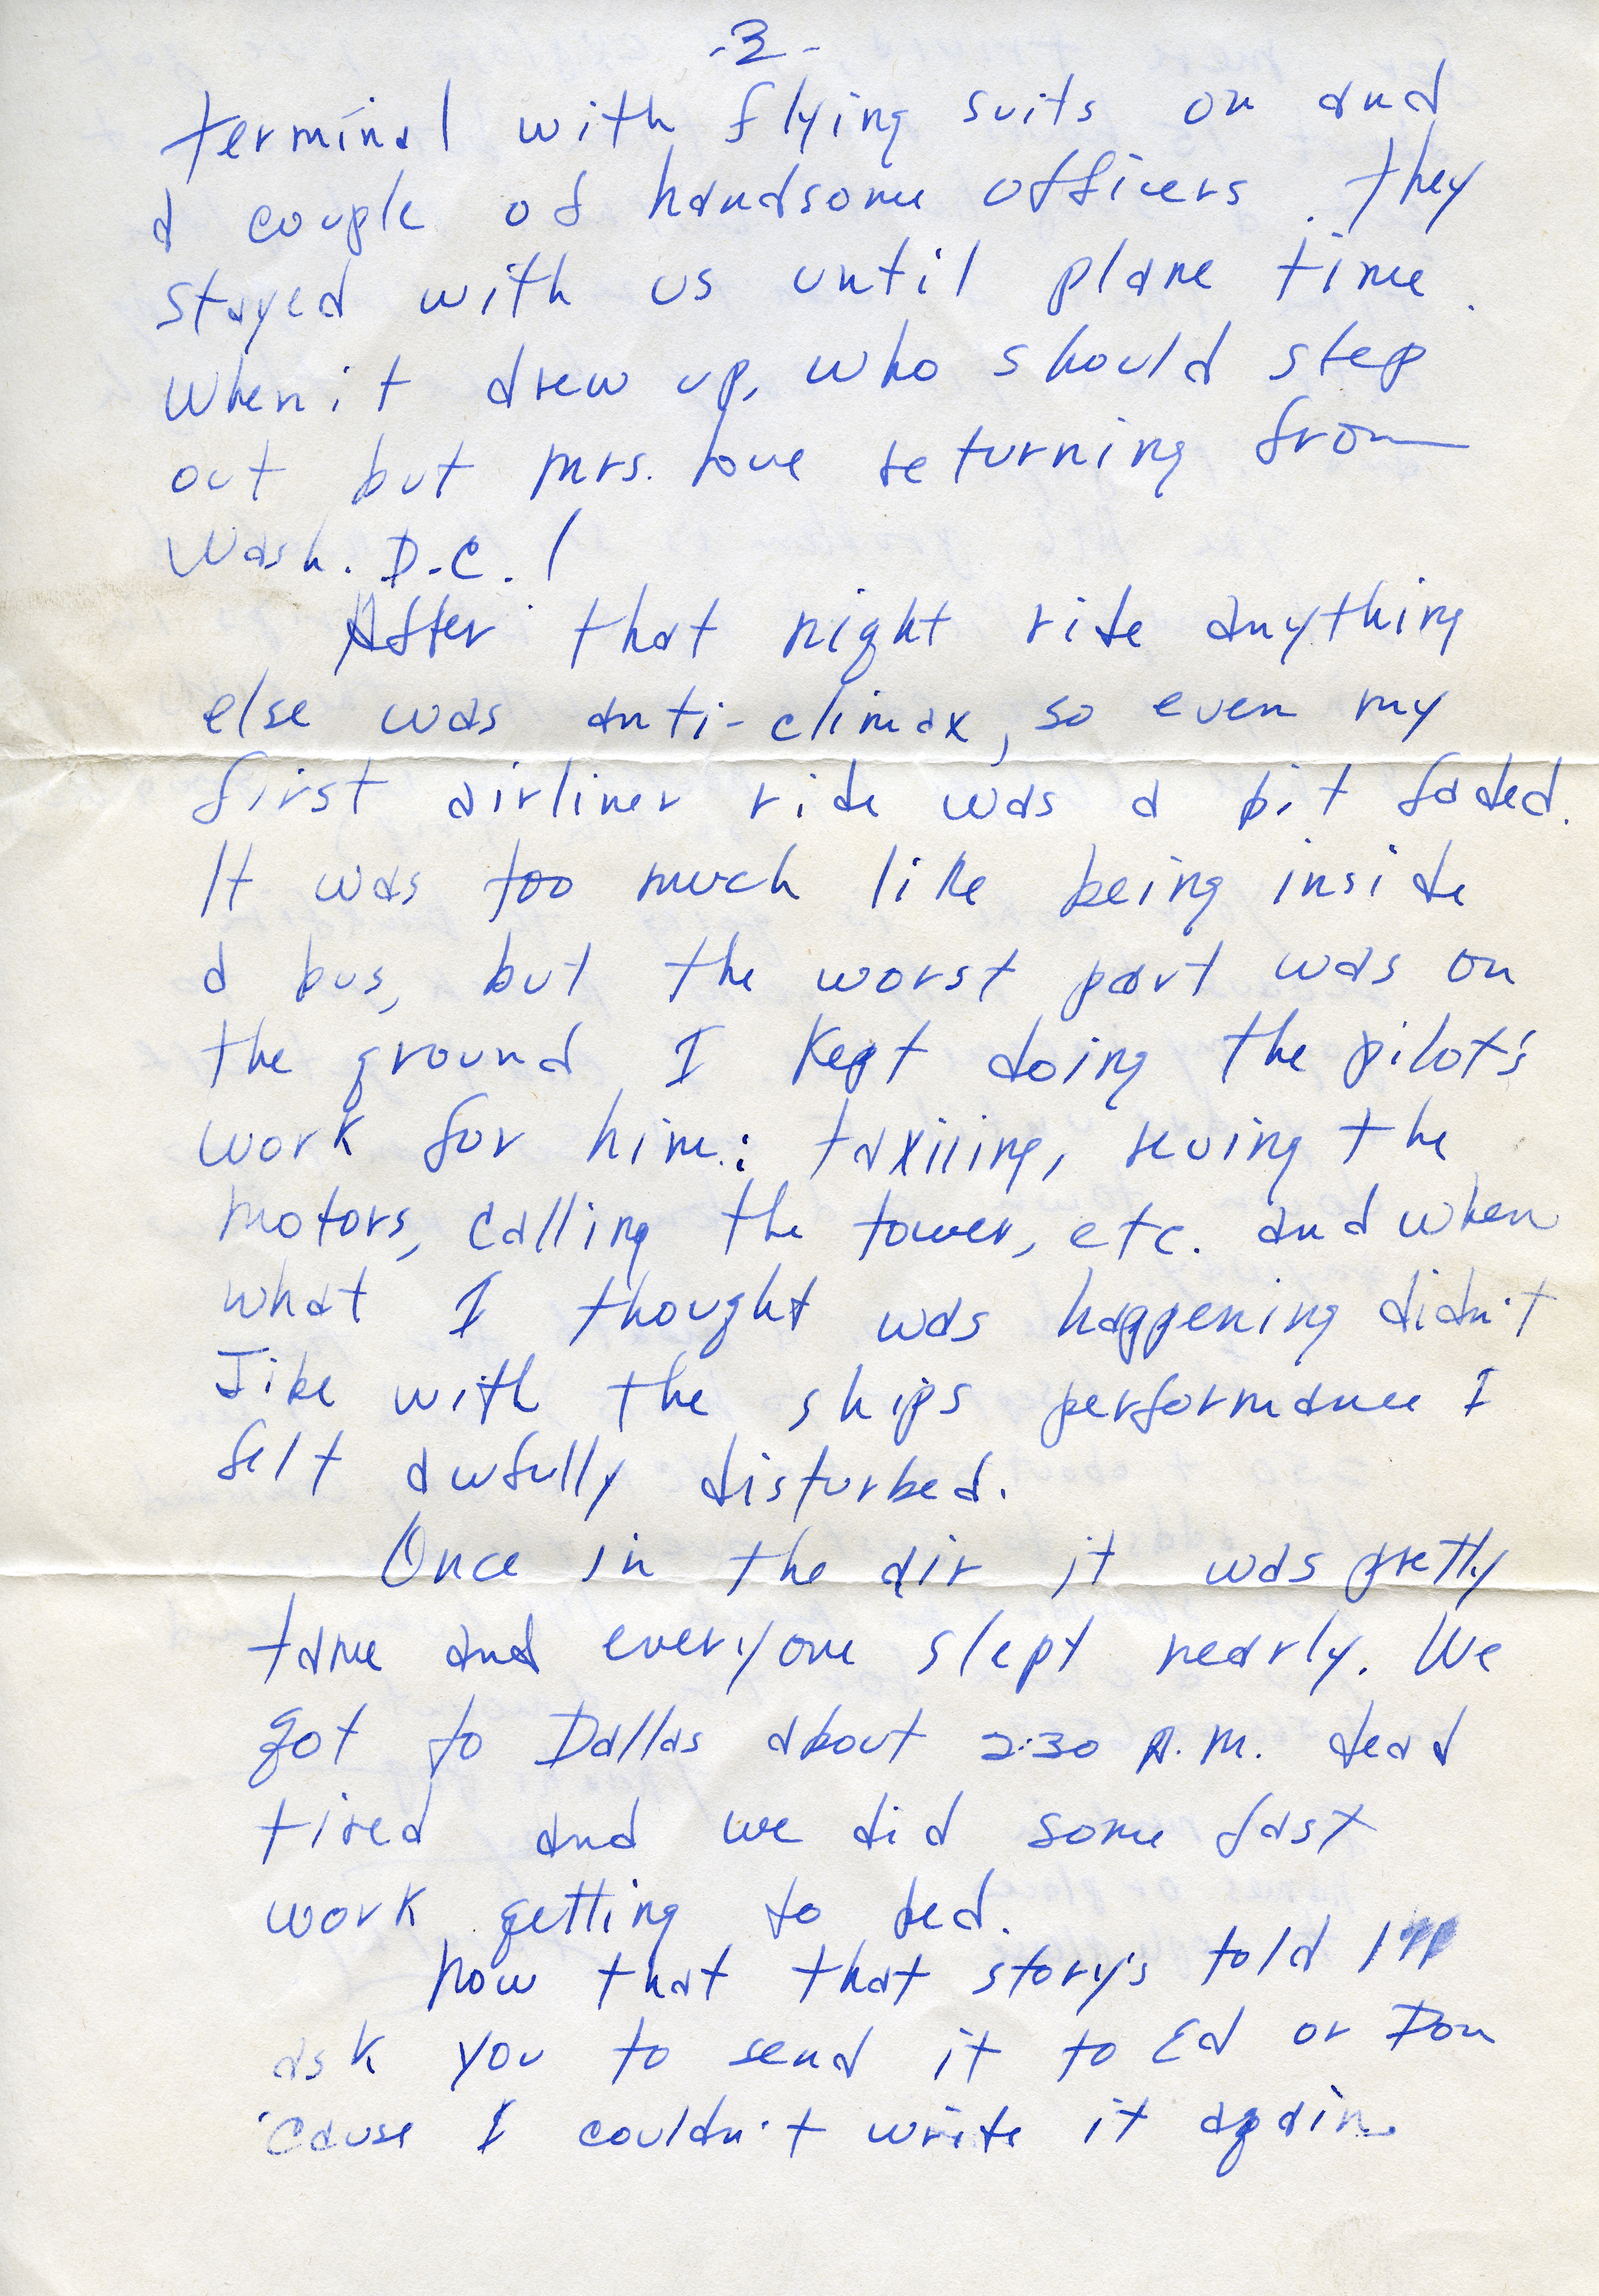 -3-
terminal with flying suits on and
a couple of handsome officers. They
stayed with us until plane time.
When it drew up, who should step
out but Mrs. Love returning from
Wash. D.C.!
After that night ride anything
else was anti-climax, so even my
first airliner ride was a bit faded.
It was too much like being inside
a bus, but the worst part was on
the ground. I kept doing the pilot's
work for him: taxiiing, reving the
motors, calling the tower, etc. and when
what I thought was happening didn't
Jibe with the ships performance I
felt awfully disturbed.
Once in the air it was pretty
tame and everyone slept nearly. We
got to Dallas about 2:30 A.M. dead
tired and we did some fast
work getting to bed.
Now that that story's told I'll
ask you to send it to Ed or Don
'cause I couldn't write it again.